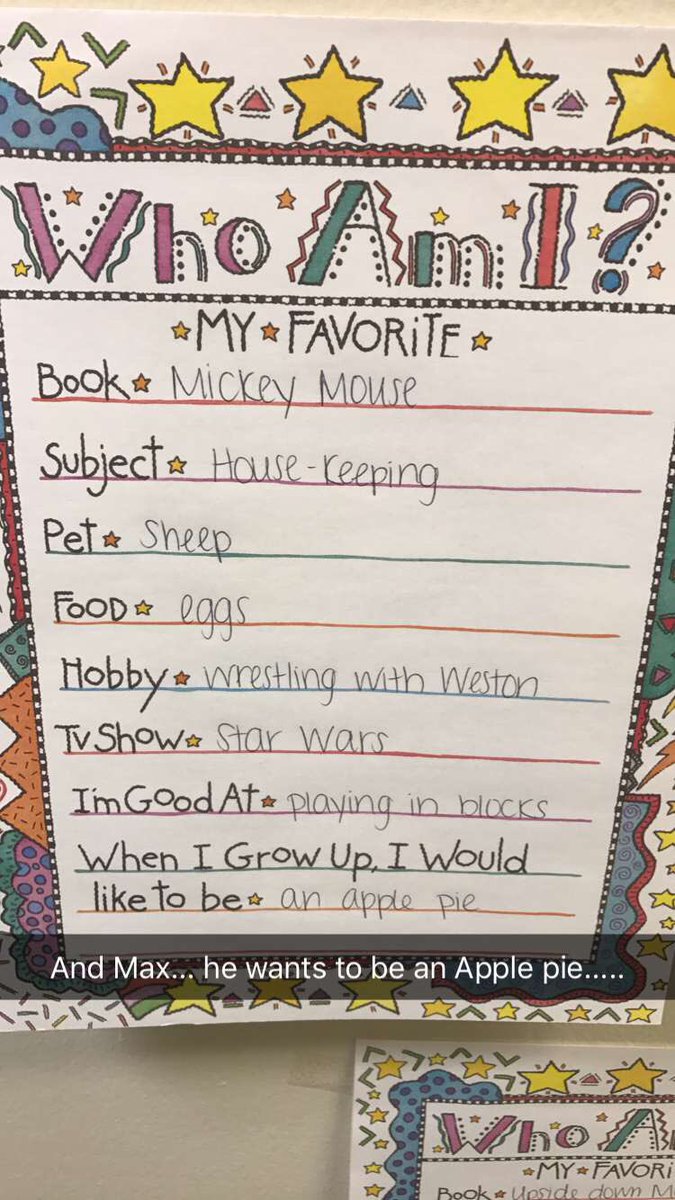 Who Am I?
MY FAVORITE
Book Mickey Mouse
Subject House-keeping
Pet Sheep
Food eggs
Hobby wrestling with Weston
TV Show Star Wars
I'm Good At playing in blocks
When I Grow Up, I Would
like to be an apple pie
And Max... he wants to be an Apple pie.....
Who A
MY FAVORI
Book Upside down M